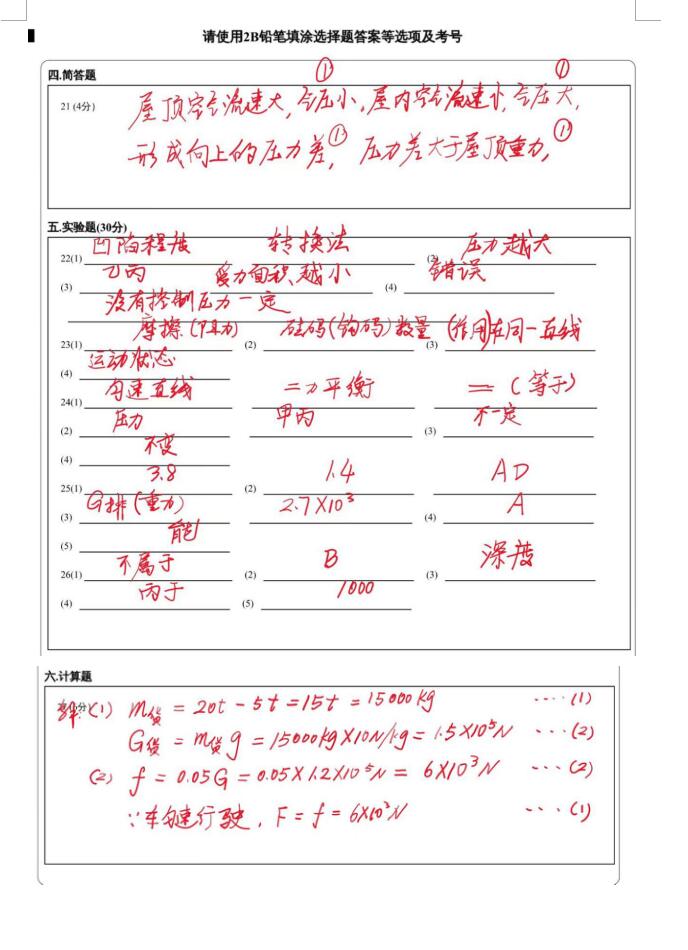 请使用2B铅笔填涂选择题答案等选项及考号
四.简答题
① ①
21 (4分) 屋顶空气流速大,气压小,屋内空气流速小,气压大,
形成向上的压力差,① 压力差大于屋顶重力,①
五.实验题(30分)
22(1) 凹陷程度 转换法 (2) 压力越大
(3) 乙丙 受力面积越小 (4) 错误
没有控制压力一定
23(1) 摩擦(阻力) (2) 砝码(钩码)数量 (3) (作用)在同一直线
(4) 运动状态
24(1) 匀速直线 二力平衡 =(等于)
(2) 压力 甲丙 (3) 不一定
(4) 不变
25(1) 3.8 (2) 1.4 AD
(3) G排(重力) 2.7×10³ (4) A
(5) 能
26(1) 不属于 (2) B (3) 深度
(4) 丙于 (5) 1000
六.计算题
解:(1) m货 = 20t - 5t = 15t = 15000kg ····(1)
G货 = m货g = 15000kg×10N/kg = 1.5×10⁵N ···(2)
(2) f = 0.05G = 0.05×1.2×10⁵N = 6×10³N ···(2)
∵车匀速行驶, F = f = 6×10³N ···(1)